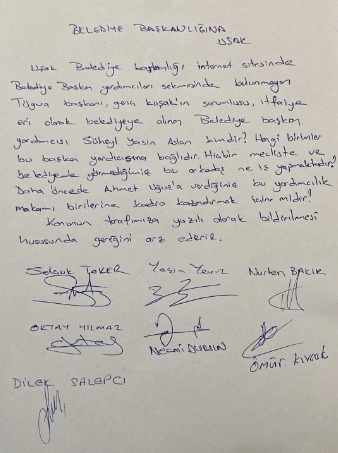 BELEDİYE BAŞKANLIĞINA
UŞAK
Uşak Belediye başkanlığı, internet sitesinde
Belediye Başkan yardımcıları sekmesinde bulunmayan
Tügva başkanı, genç kuşak'ın sorumlusu, itfaiye
eri olarak belediyeye alınan Belediye başkan
yardımcısı Süheyl Yasin Aslan kimdir? Hangi birimler
bu başkan yardımcısına bağlıdır. Hiçbir mecliste ve
belediyede görmediğimiz bu arkadaş ne iş yapmaktadır?
Daha öncede Ahmet Uğuz'a verdiğiniz bu yardımcılık
makamı birilerine kadro kazandırmak için midir?
Konunun tarafımıza yazılı olarak bildirilmesi
hususunda gereğini arz ederiz.
Selçuk TOKER Yasin Nurten BAKIR
OKTAY YILMAZ Necmi DURSUN ÖMÜR
DİLEK SALEPCİ